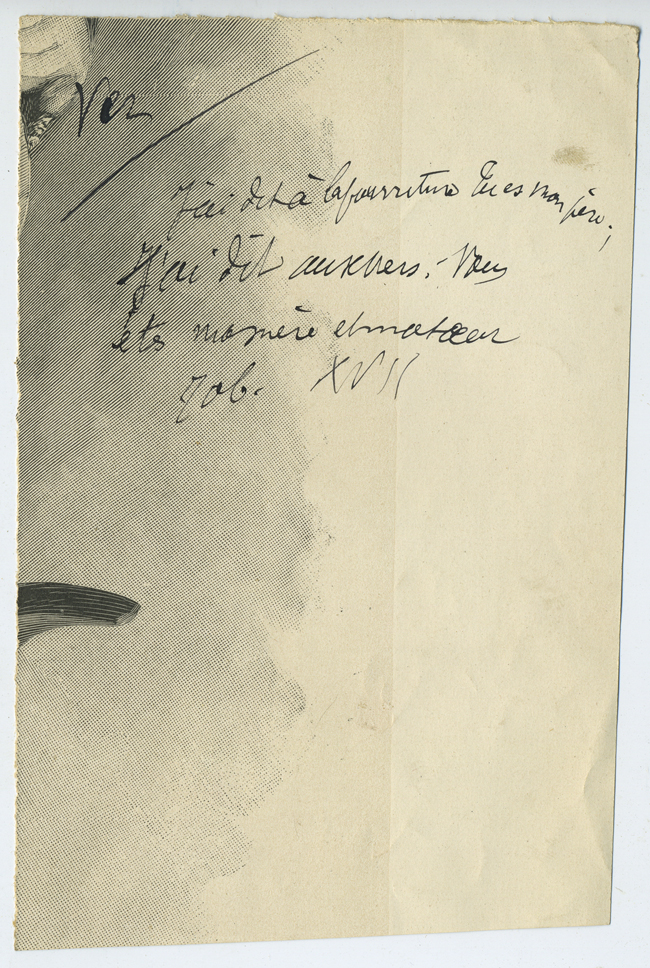 Ver
J'ai dit à la pourriture Tu es mon père;
J'ai dit aux vers: - Vous
êtes ma mère et ma sœur
Job. XVII